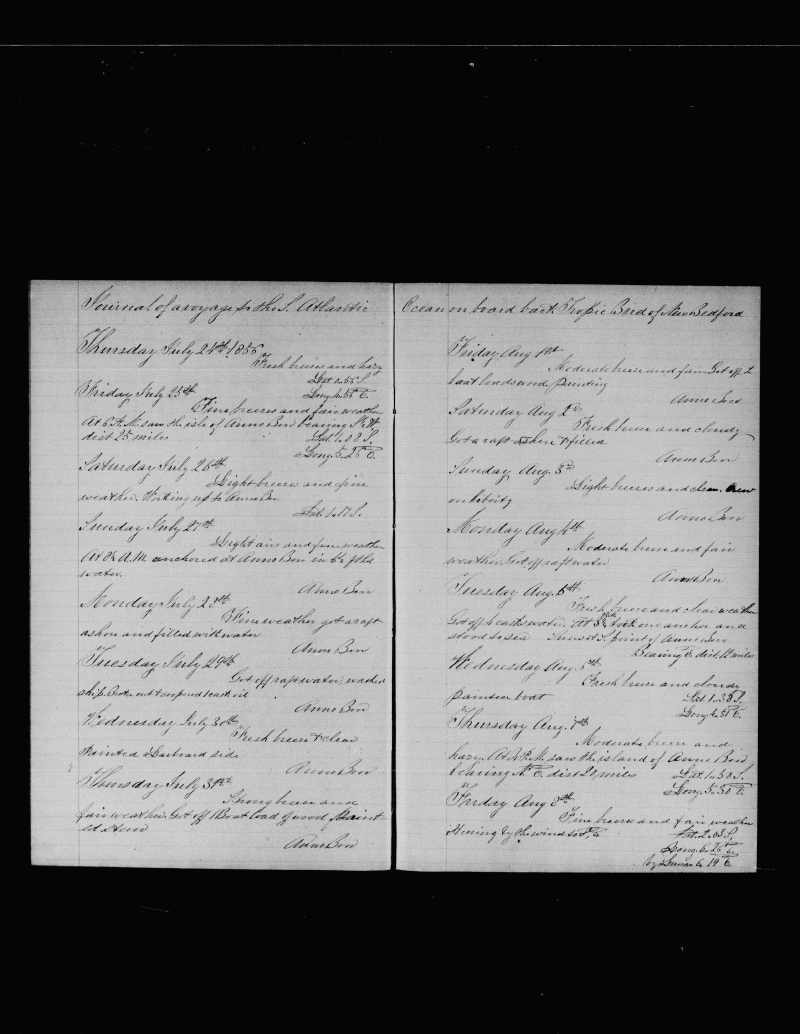 Journal of a voyage to the S. Atlantic
Thursday July 24th 1856
Fresh breeses and hazy
Lat. 0.55 S.
Long. 4.56 E.
Friday July 25th
Fine breeses and fair weather
At 6 A.M. saw the isle of Anno Bon bearing
dist 25 miles
Lat. 1.08 S.
Long. 5.26 E.
Saturday July 26th
Light breese and fine
weather. Working up to Anno Bon
Lat. 1.17 S.
Sunday July 27th
Light airs and fine weather
At A.M. anchored at Anno Bon in fths
water.
Anno Bon
Monday July 28th
Fine weather got a raft
ashore and filled with water
Anno Bon
Tuesday July 29th
Got off raft water, washed
ship. Broke out & coopered 1 cask oil
Anno Bon
Wednesday July 30th
Fresh breese & clear
Painted Larboard side
Anno Bon
Thursday July 31st
Strong breese and
fair weather. Got off 1 Boat load of wood
Anno Bon
Ocean on board bark Tropic Bird of New Bedford
Friday Aug 1st
Moderate breese and fair Got off 2
boat loads wood, painting
Anno Bon
Saturday Aug 2d
Fresh breese and cloudy
Got a raft ashore & filled
Anno Bon
Sunday Aug. 3rd
Light breeses and clear. Crew
on liberty
Anno Bon
Monday Aug 4th
Moderate breese and fair
weather. Got off raft water
Anno Bon
Tuesday Aug. 5th
Fresh breese and clear weather
Got off casks water. At 3 P.M. took our anchor and
stood to sea Sunset S. point of Anno Bon
Bearing E. dist. 12 miles
Wednesday Aug. 6th
Fresh breese and cloudy
painten boat
Lat. 1.38 S.
Long. 4.51 E.
Thursday Aug. 7th
Moderate breese and
hazy. At P.M. saw the island of Anno Bon
bearing N. E. dist 20 miles
Lat. 1.50 S.
Long. 5.30 E.
Friday Aug 8th
Fine breeses and fair weather
Steering by the wind
Lat. 2.03 S.
Long. 6.26 E.
by Lunar 6.19 E.